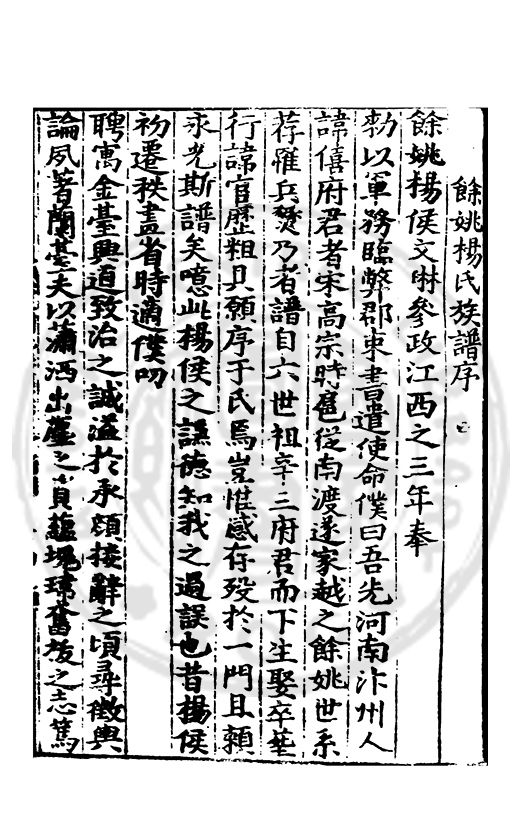 餘姚楊氏族譜序
餘姚楊侯文啉參政江西之三年奉
勑以軍務臨弊郡東書遣使命僕曰吾先河南汴州人
諱僖府君者宋高宗時扈從南渡遂家越之餘姚世系
荐罹兵燹乃者譜自六世祖辛三府君而下生娶卒葬
行諱官歷粗具願序于氏焉豈惟感存殁於一門且賴
永光斯譜矣噫此楊侯之謙德知我之過誤也昔楊侯
初遷秩盡省時適僕叨
聘寓金臺興道致治之誠溢於承顏接辭之頃尋徵輿
論夙著蘭臺夫以瀟洒出塵之資蘊塊瑋奮拔之志篤